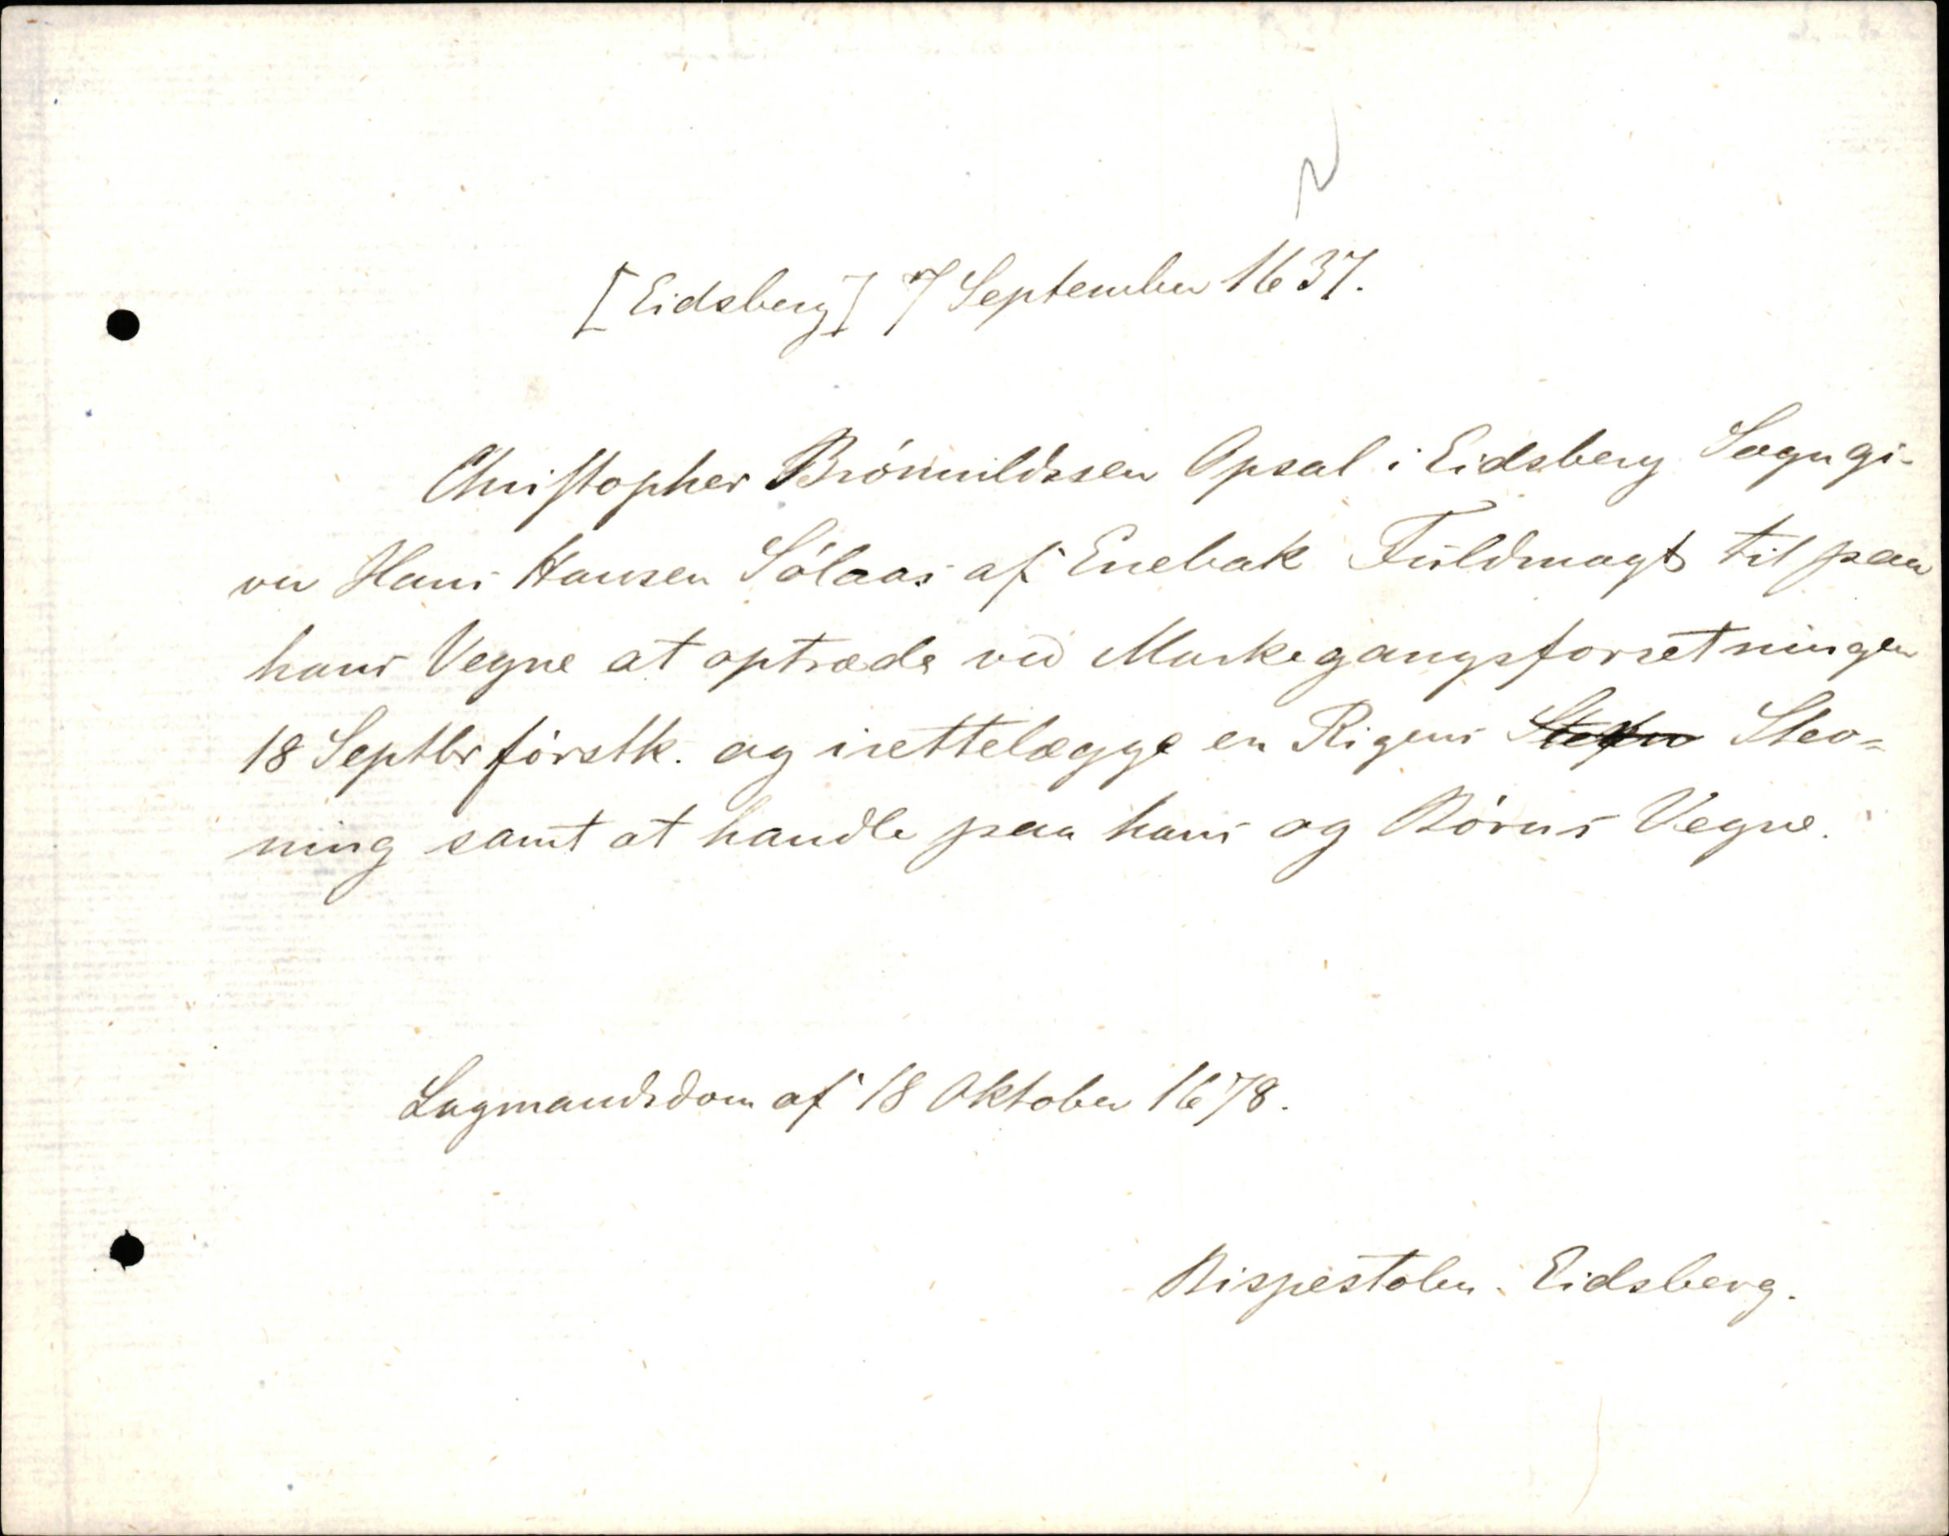 [Eidsberg] 7 September 1637.
Christopher Brömmildssen Opsal i Eidsberg Sogn gi-
ver Hans Hansen Sólaas af Enebak Fuldmagt til paa
hans Vegne at optræde ved Markegangsforretningen
18 Septbr förstk. og irettelægge en Rigens Stevn Stev-
ning samt at handle paa hans og Börns Vegne.
Lagmandsdom af 18 Oktober 1678.
Bispestolen. Eidsberg.